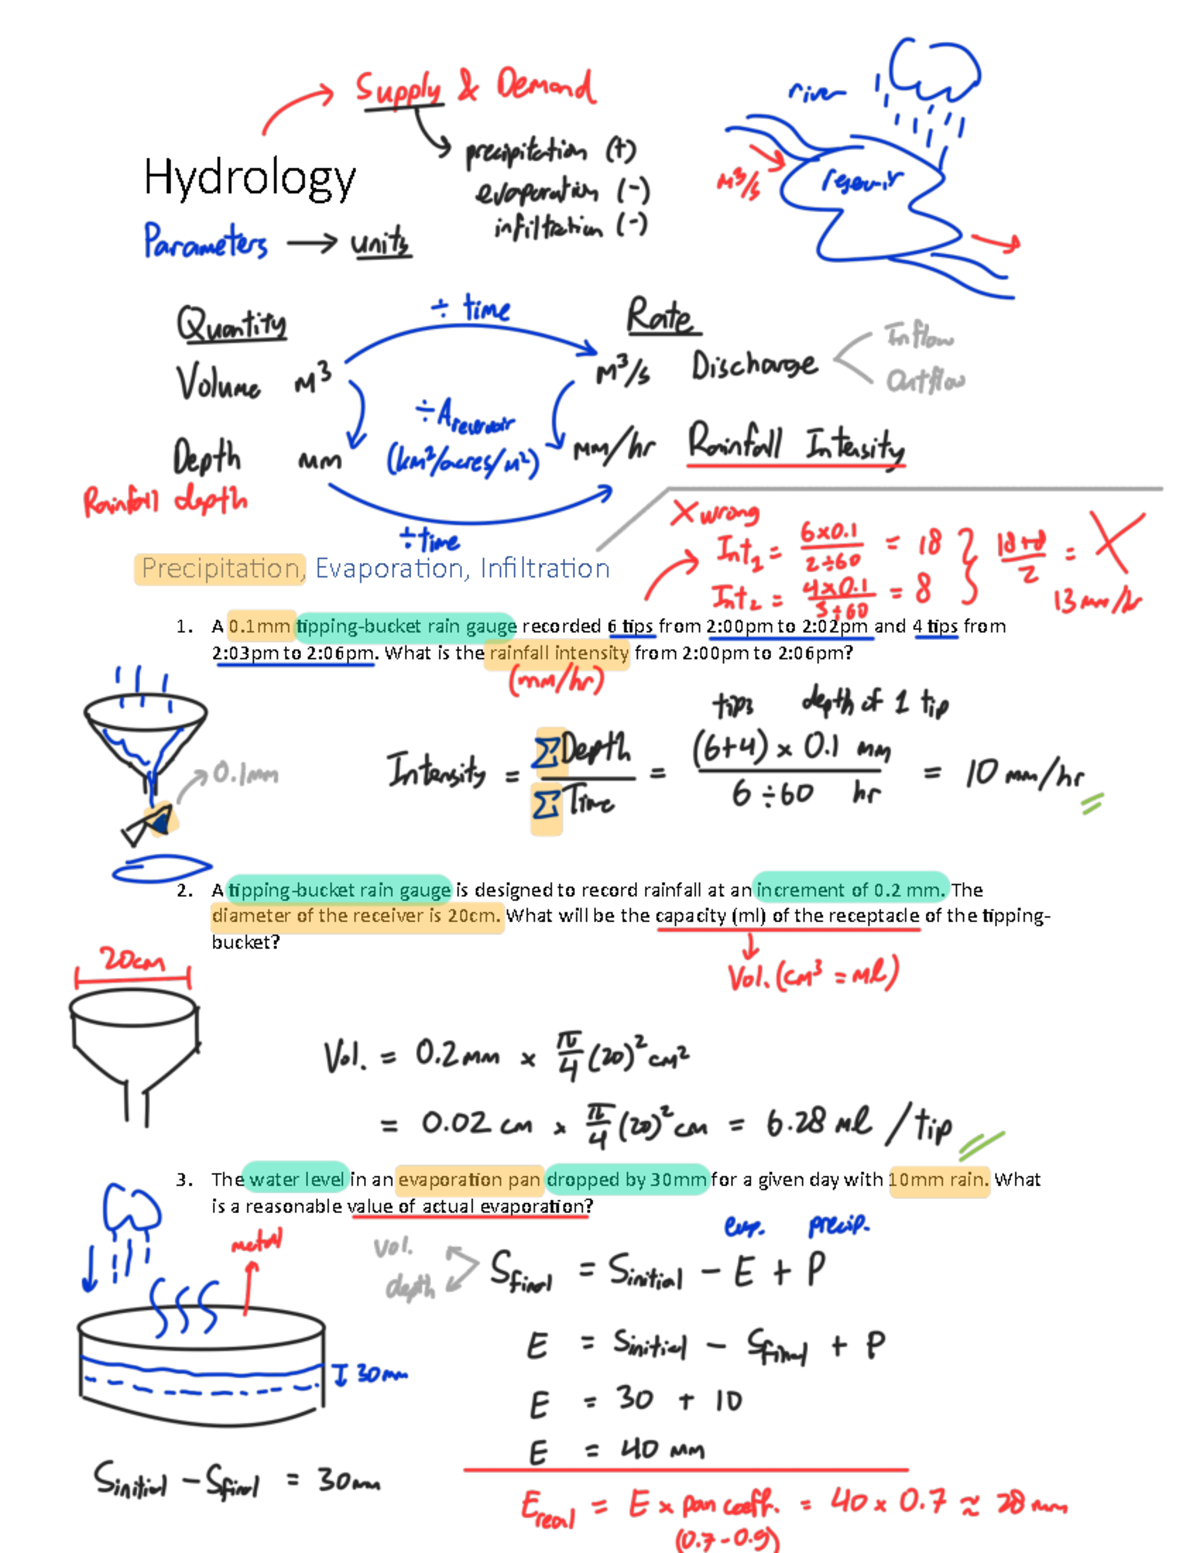 Supply & Demand
river
precipitation (+)
Hydrology
evaporation (-)
M³/s
reservoir
infiltration (-)
Parameters → units
÷ time
Quantity
Rate
Volume M³
M³/s Discharge
Inflow
Outflow
÷ Areservoir
(km²/acres/m²)
Depth mm
mm/hr Rainfall Intensity
Rainfall depth
÷ time
X wrong
Int₂ = 6×0.1 / 2÷60 = 18
Int₂ = 4×0.1 / 3÷60 = 8
18+8 / 2 = X
13 mm/hr
Precipitation, Evaporation, Infiltration
1. A 0.1mm tipping-bucket rain gauge recorded 6 tips from 2:00pm to 2:02pm and 4 tips from
2:03pm to 2:06pm. What is the rainfall intensity from 2:00pm to 2:06pm?
(mm/hr)
tips depth of 1 tip
0.1mm
Intensity = ΣDepth / ΣTime = (6+4) × 0.1 mm / 6÷60 hr = 10 mm/hr
2. A tipping-bucket rain gauge is designed to record rainfall at an increment of 0.2 mm. The
diameter of the receiver is 20cm. What will be the capacity (ml) of the receptacle of the tipping-
bucket?
20cm
Vol. (cm³ = ml)
Vol. = 0.2mm × π/4 (20)² cm²
= 0.02 cm × π/4 (20)² cm = 6.28 ml / tip
3. The water level in an evaporation pan dropped by 30mm for a given day with 10mm rain. What
is a reasonable value of actual evaporation?
evap. precip.
metal
Vol.
depth
Sfinal = Sinitial - E + P
E = Sinitial - Sfinal + P
30mm
E = 30 + 10
E = 40 mm
Sinitial - Sfinal = 30mm
Ereal = E × pan coeff. = 40 × 0.7 ≈ 28 mm
(0.7-0.9)